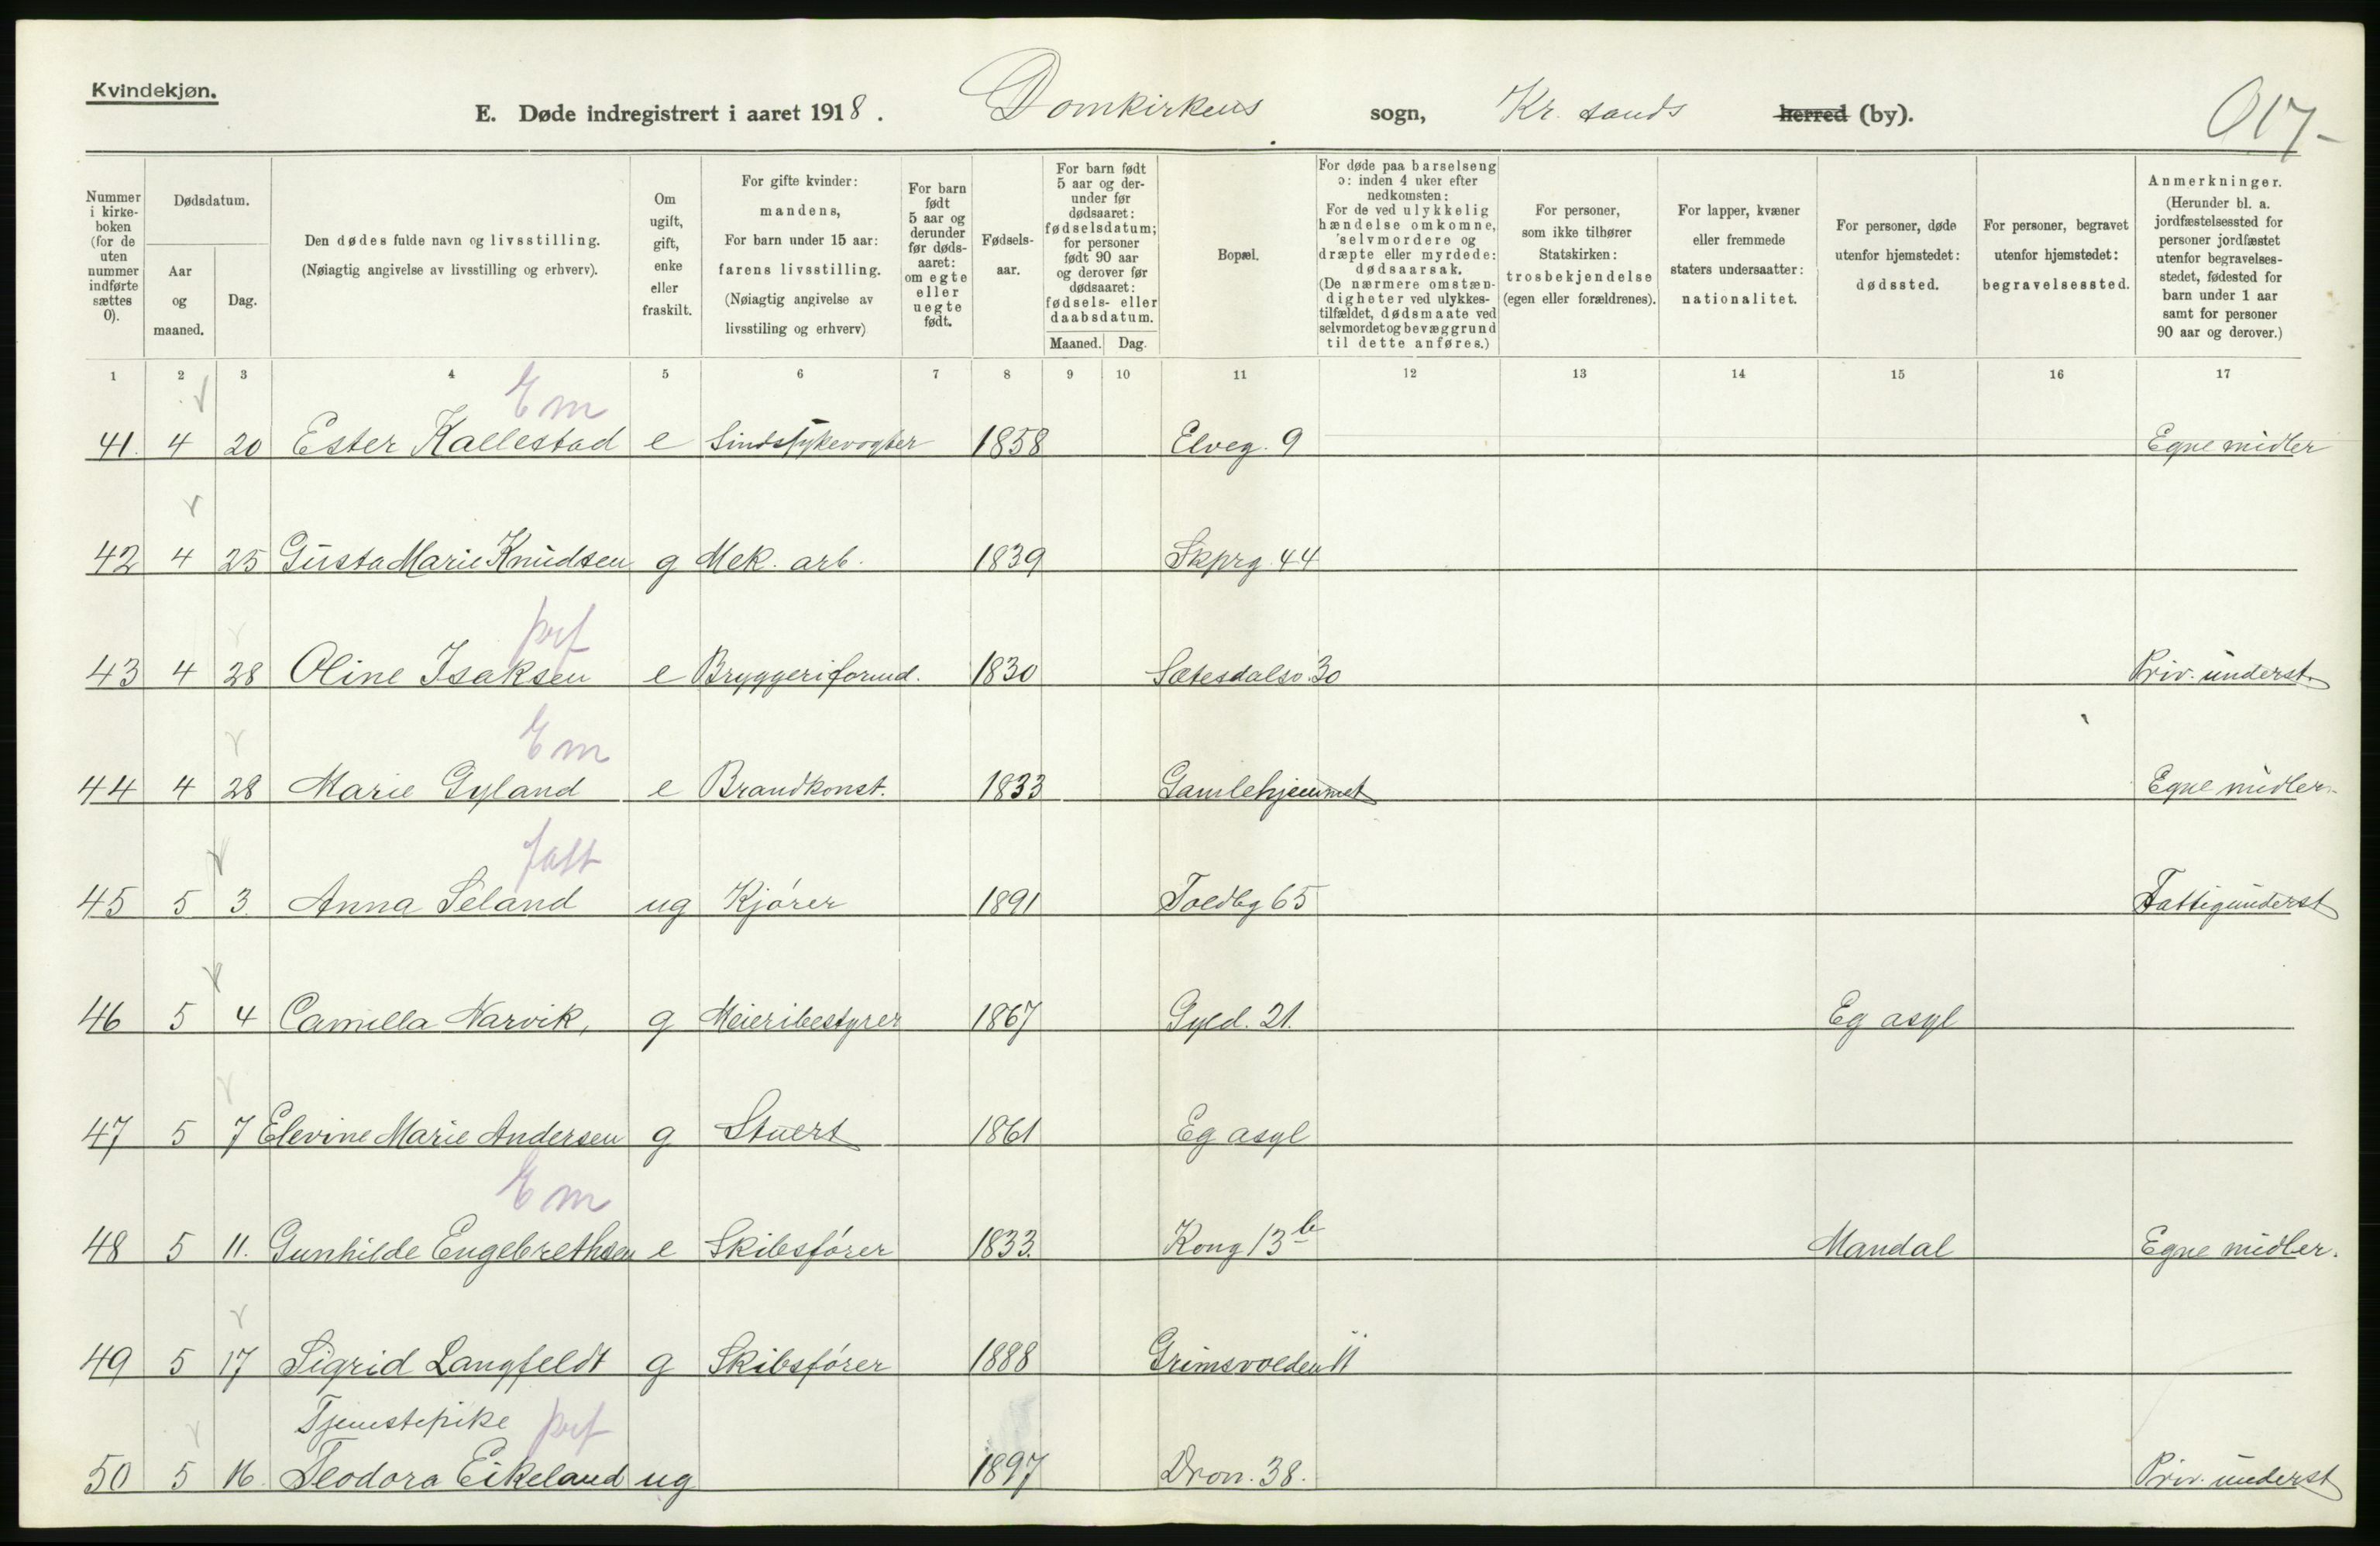 Kvindekjøn.
E. Døde indregistrert i aaret 1918. Domkirkens sogn, Kr. sands herred (by).
017-
Nummer i kirke-boken (for de uten nummer indførte sættes 0).
Dødsdatum.
Aar og maaned.
Dag.
Den dødes fulde navn og livsstilling.
(Nøiagtig angivelse av livsstilling og erhverv).
Om ugift, gift, enke eller fraskilt.
For gifte kvinder: mandens,
For barn under 15 aar: farens livsstilling.
(Nøiagtig angivelse av livsstiling og erhverv)
For barn født 5 aar og derunder før døds-aaret: om egte eller uegte født.
Fødsels-aar.
For barn født 5 aar og der-under før dødsaaret: fødselsdatum; for personer født 90 aar og derover før dødsaaret: fødsels- eller daabsdatum.
Maaned. Dag.
Bopæl.
For døde paa barselseng ɔ: inden 4 uker efter nedkomsten:
For de ved ulykkelig hændelse omkomne, selvmordere og dræpte eller myrdede: dødsaarsak.
(De nærmere omstæn-digheter ved ulykkes-tilfældet, dødsmaate ved selvmordet og bevæggrund til dette anføres.)
For personer, som ikke tilhører Statskirken: trosbekjendelse (egen eller forældrenes).
For lapper, kvæner eller fremmede staters undersaatter: nationalitet.
For personer, døde utenfor hjemstedet: dødssted.
For personer, begravet utenfor hjemstedet: begravelsessted.
Anmerkninger.
(Herunder bl. a. jordfæstelsessted for personer jordfæstet utenfor begravelses-stedet, fødested for barn under 1 aar samt for personer 90 aar og derover.)
1 2 3 4 5 6 7 8 9 10 11 12 13 14 15 16 17
Em
41. 4 20 Ester Kallestad e Sindssykevogter 1858 Elveg. 9 Egne midler
42 4 25 Gusta Marie Knudsen g Mek. arb. 1839 Skprg. 44
prf
43 4 28 Oline Isaksen e Bryggeriformd. 1830 Sætesdalsv. 30 Priv. underst.
Em
44 4 28 Marie Gyland e Brandkonst. 1833 Gamlehjemmet Egne midler.
fatt
45 5 3. Anna Seland ug Kjører 1891 Toldbg 65 Fattigunderst
46 5 4 Camilla Narvik, g Meieribestyrer 1867 Gyld. 21. Eg asyl
47 5 7 Elevine Marie Andersen g Stuert 1861 Eg asyl
Em
48 5 11. Gunhilde Engebrethsen e Skibsfører 1833. Kong 13 b Mandal Egne midler.
49 5 17 Sigrid Langfeldt g Skibsfører 1888 Grimsvolden 11
Tjenestepike prf
50 5 16. Teodora Eikeland ug 1897 Dron. 38. Priv. underst